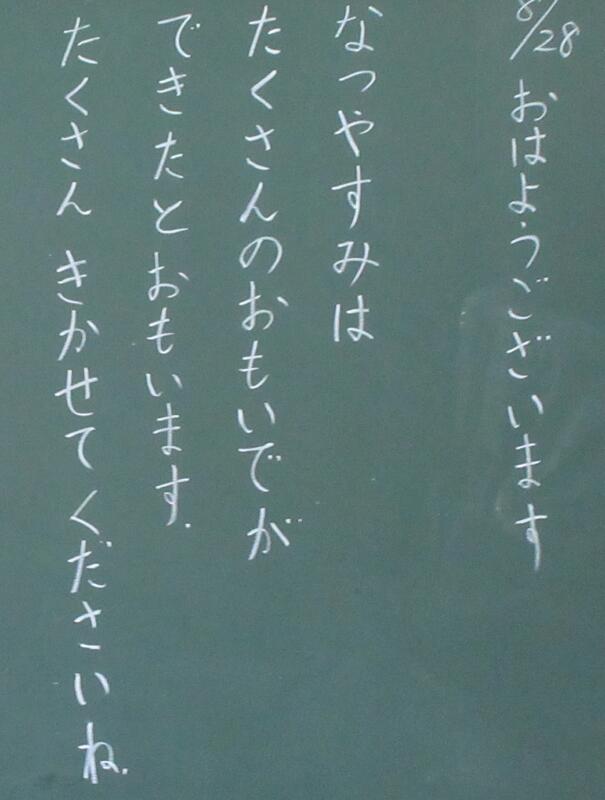 8/28 おはようございます
なつやすみは
たくさんのおもいでが
できたとおもいます.
たくさん きかせてくださいね.